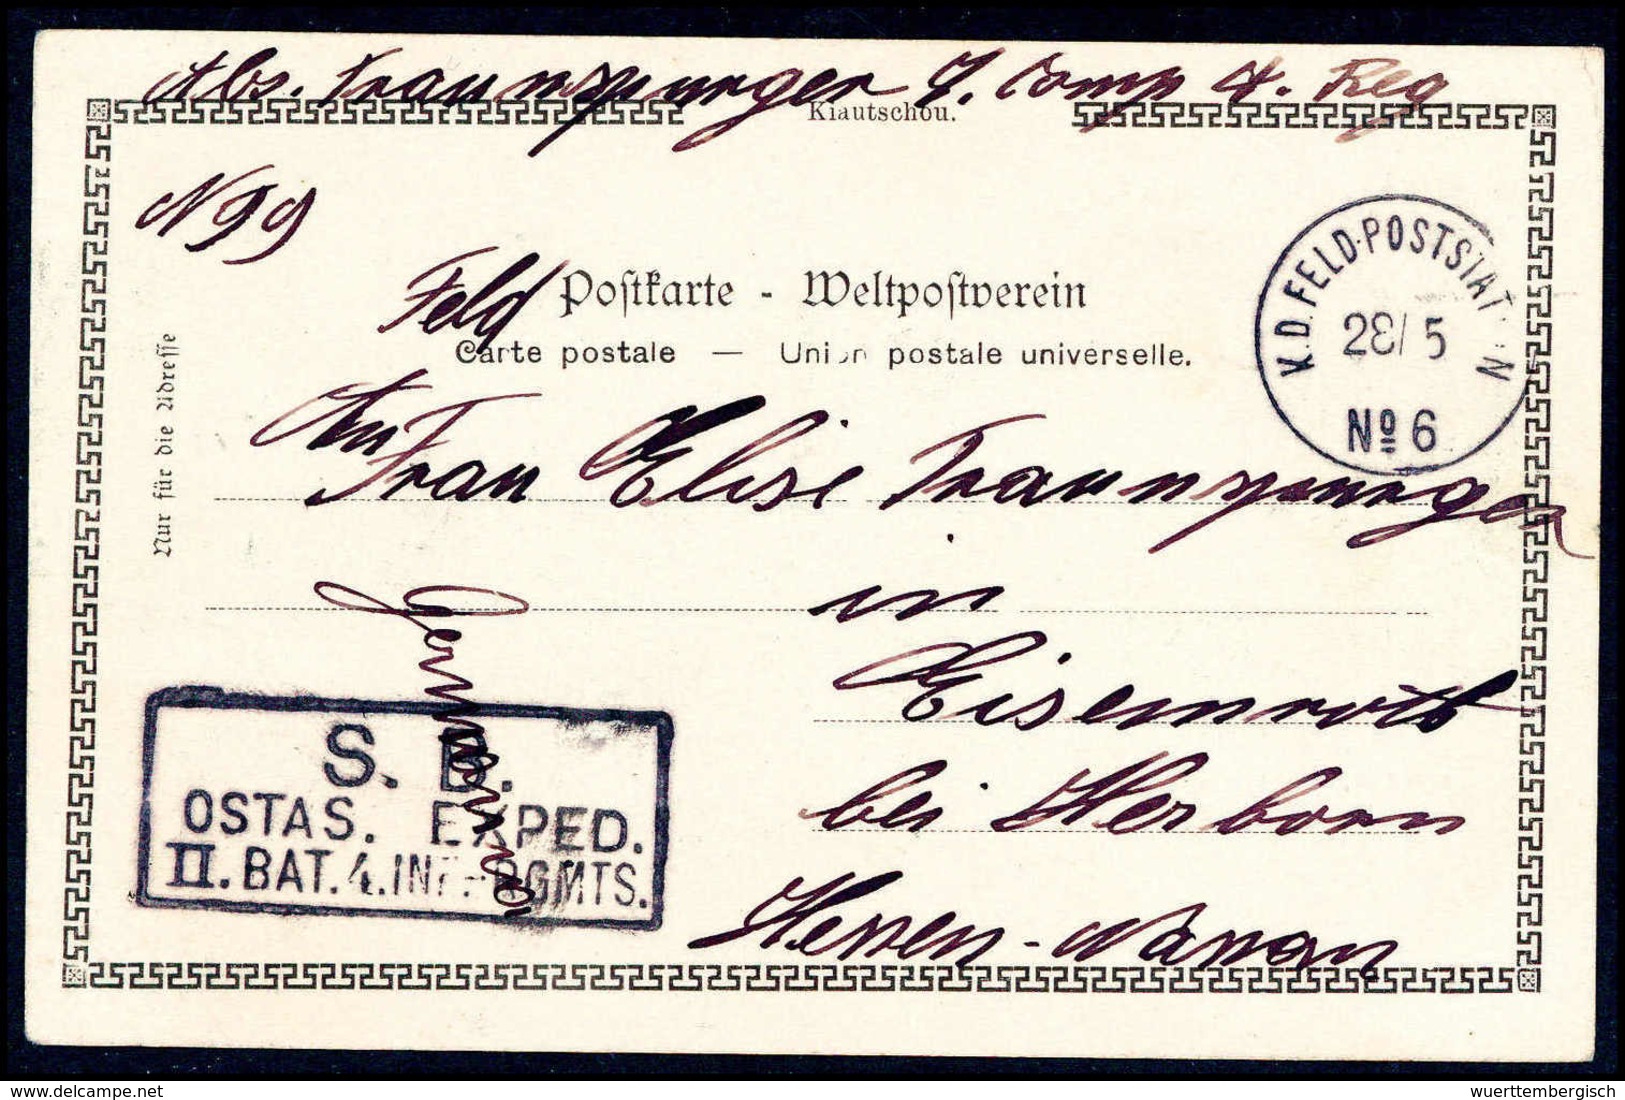 Abs. Traunspurger 7. Comp 4. Reg
Kiautschou.
N 99
Feld Postkarte - Weltpostverein
Carte postale — Union postale universelle.
Nur für die Adresse
K.D. FELD-POSTSTAT N
28/5
No 6
An
Frau Elise Traunspurger
in
Eisemroth
bei Herborn
Hessen-Nassau
Germania
S. B.
OSTAS. EXPED.
II. BAT. 4. INF-RGMTS.
wuerttembergisch